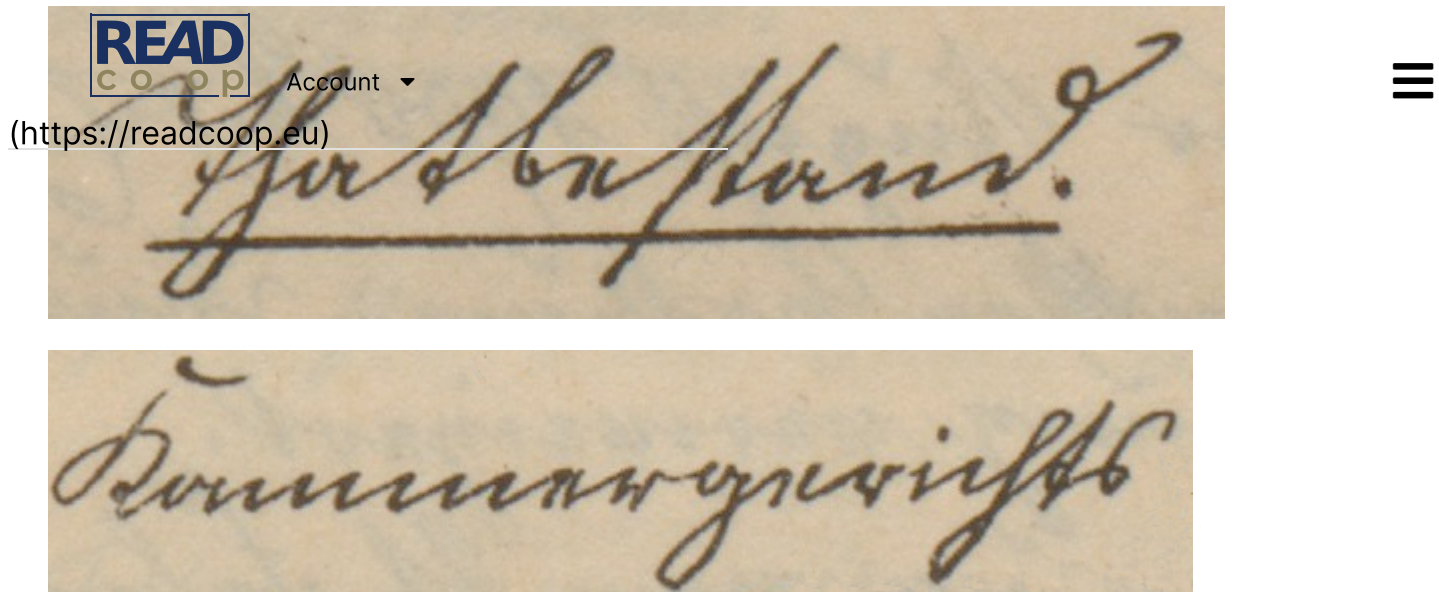 READ
co op
Account
(https://readcoop.eu)
Thatbestand.
Kammergerichts